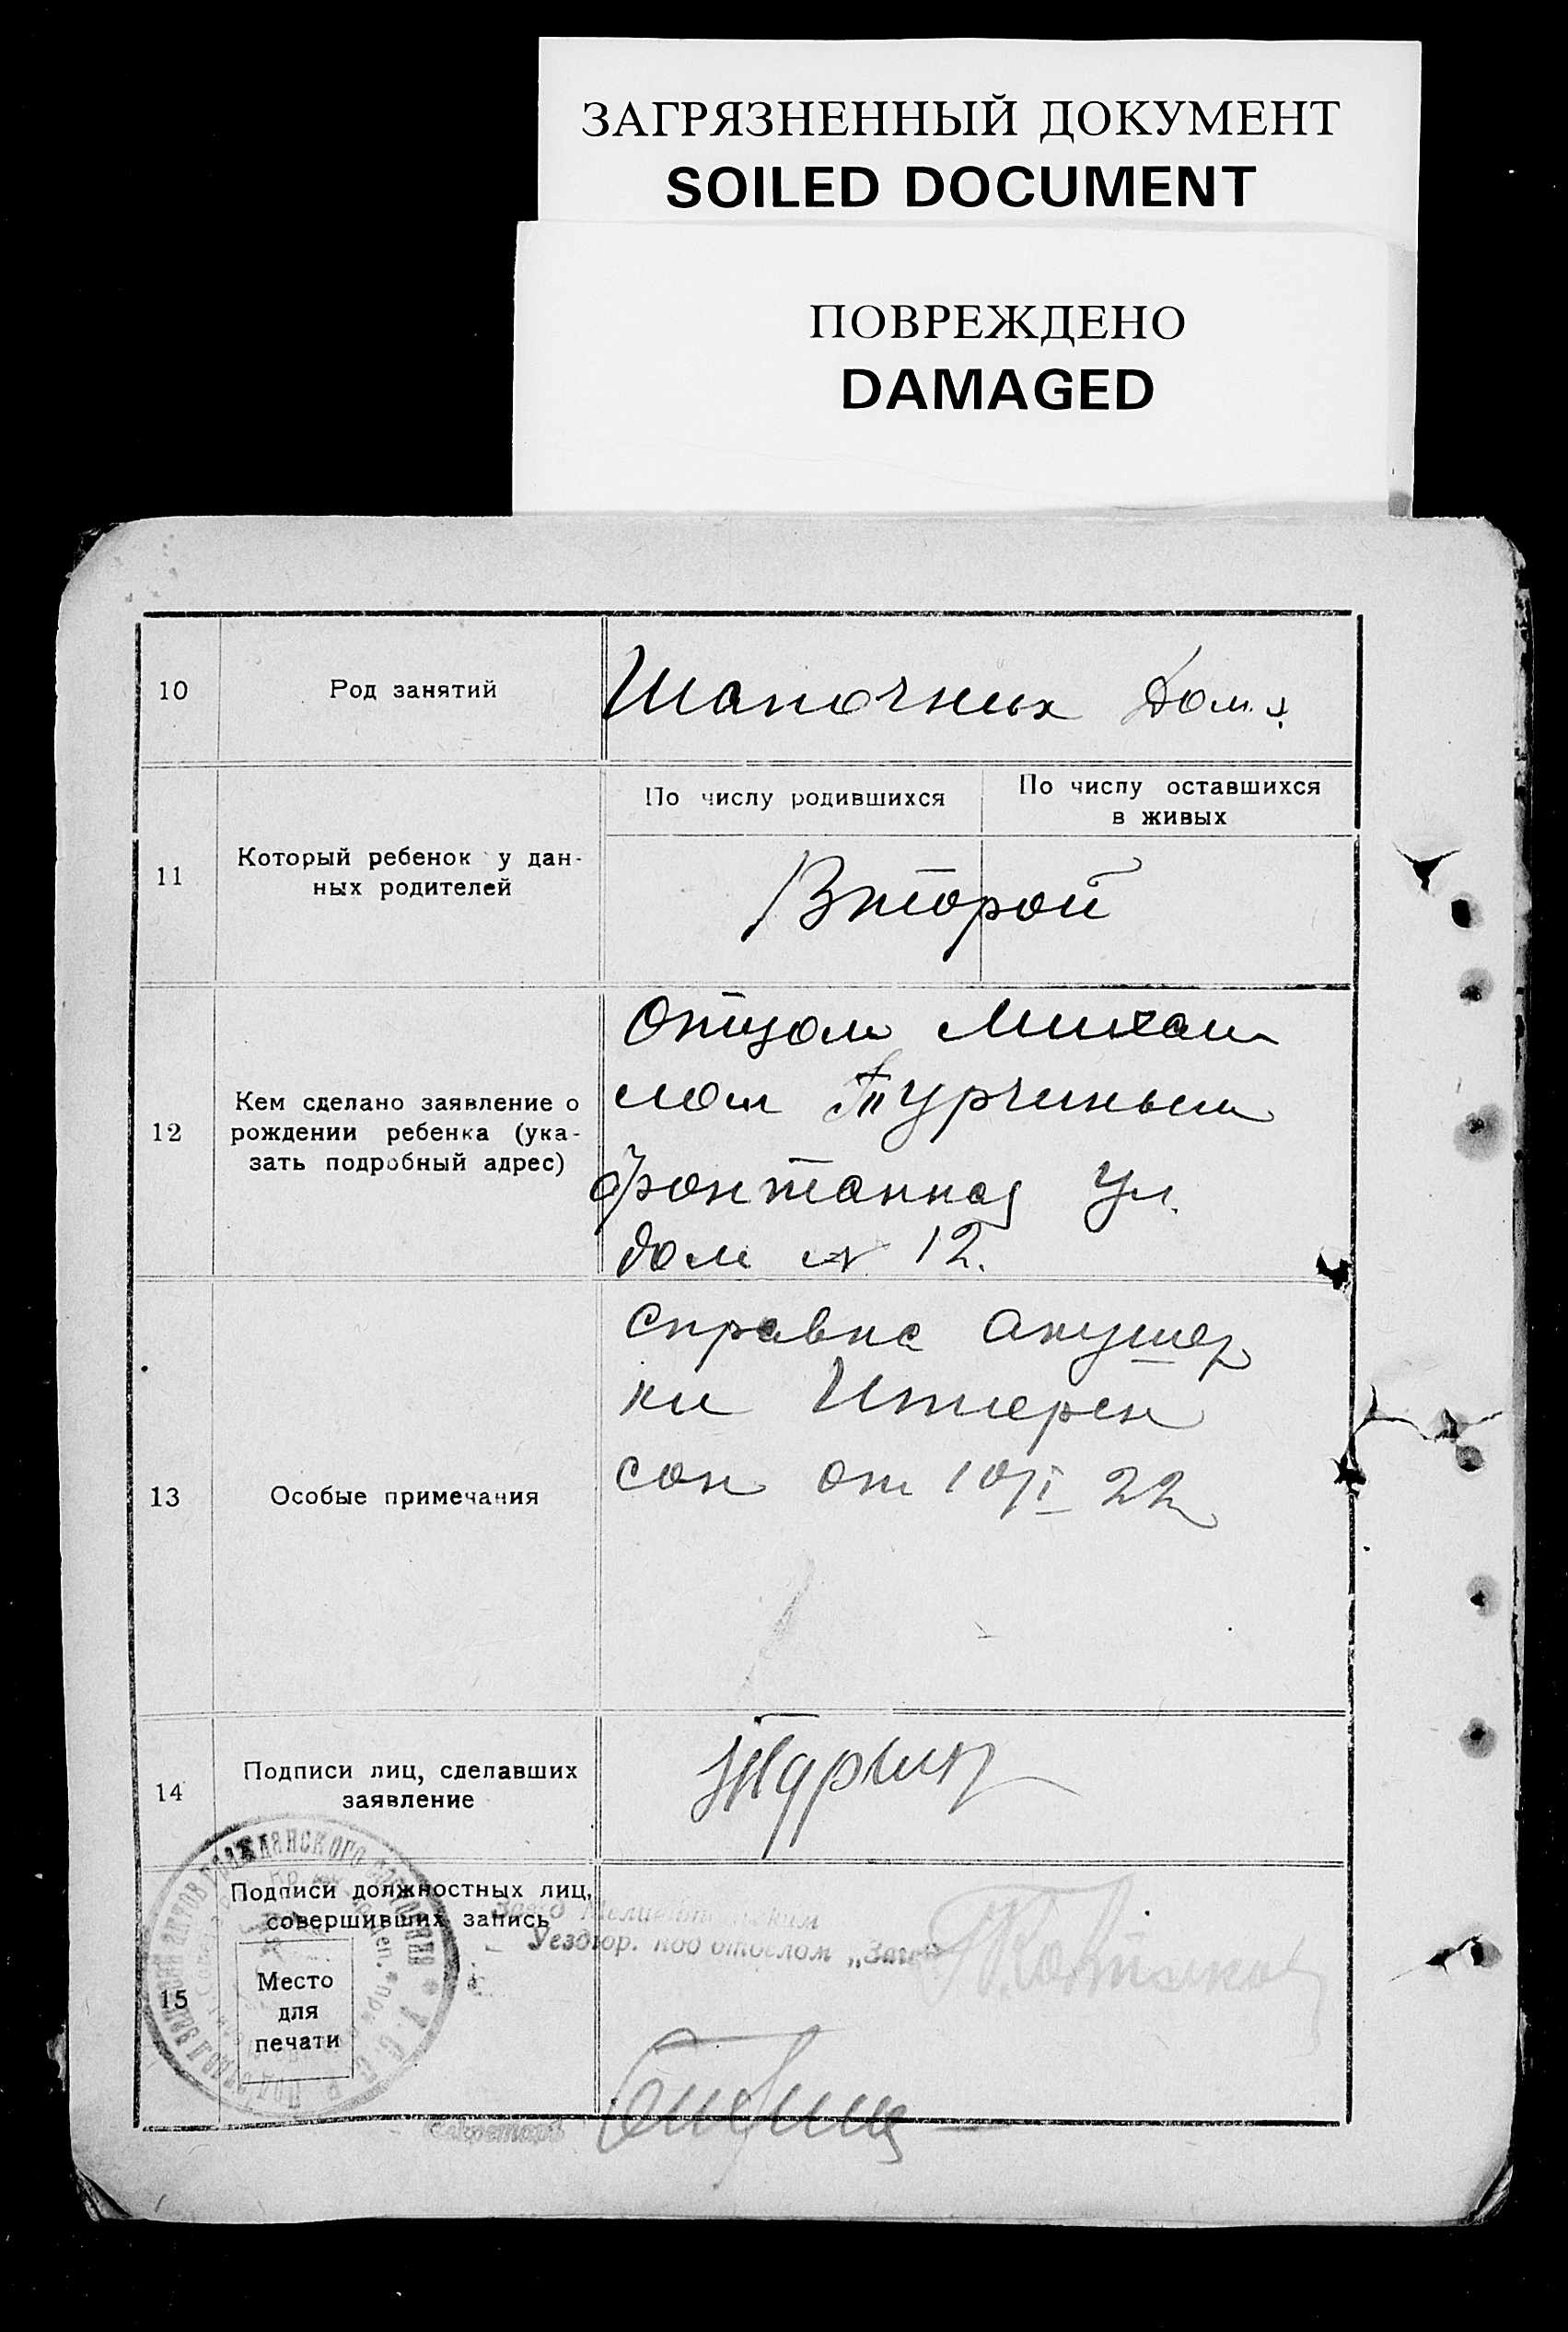 ЗАГРЯЗНЕННЫЙ ДОКУМЕНТ
SOILED DOCUMENT
ПОВРЕЖДЕНО
DAMAGED
10
Род занятий
Шапочник Дом. х.
11
Который ребенок у дан-
ных родителей
По числу родившихся
По числу оставшихся
в живых
Второй
12
Кем сделано заявление о
рождении ребенка (ука-
зать подробный адрес)
Отцом Михаи
лом Турчиным
Фонтанная ул.
дом № 12.
13
Особые примечания
Справка акушер
ки
сон от 10/I 22
14
Подписи лиц, сделавших
заявление
Турчин
15
Подписи должностных лиц,
совершивших запись
Место
для
печати
Уездгор. под отделом „Загс"
Секретарь